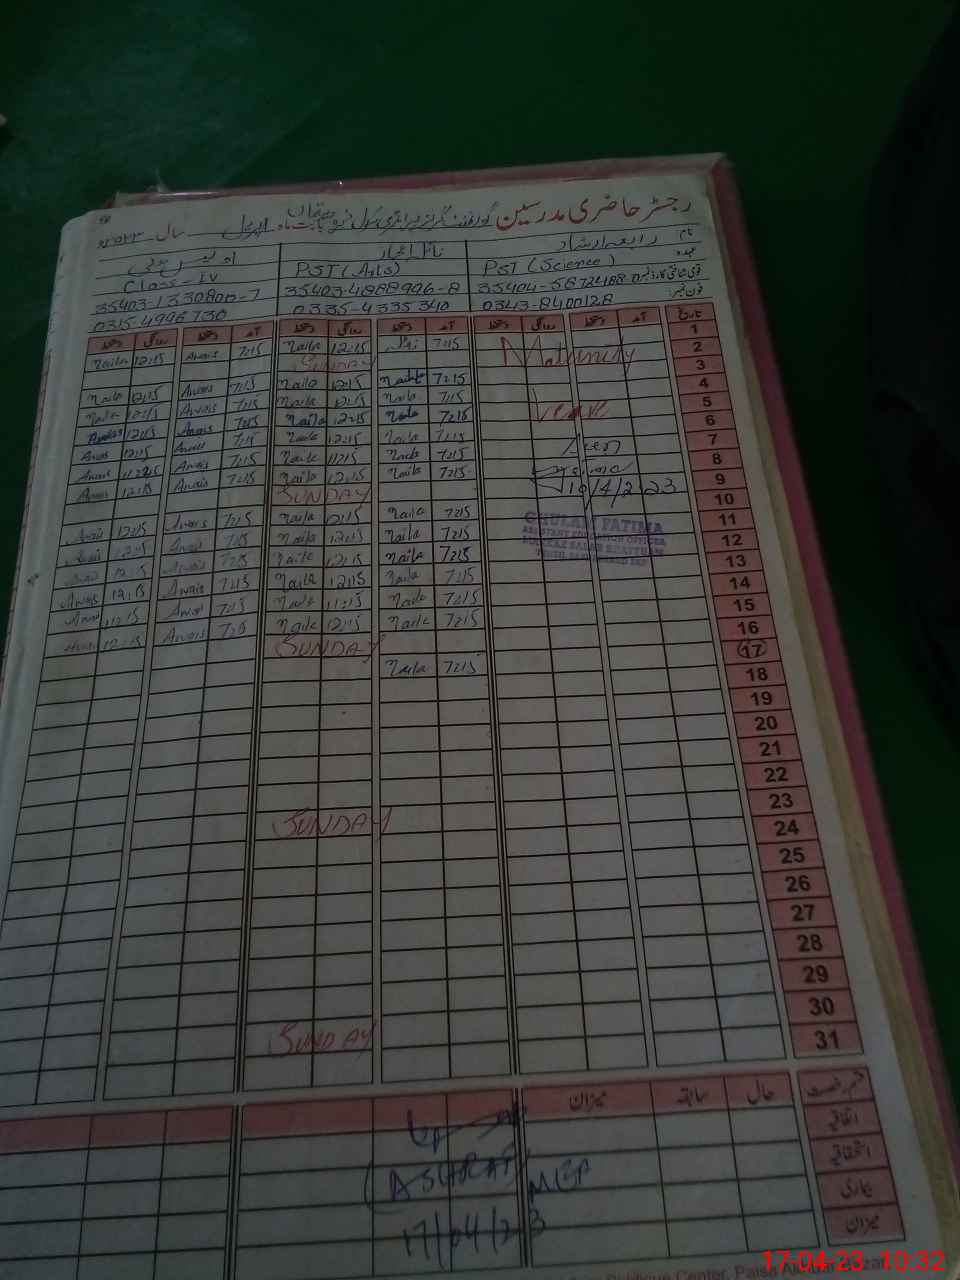 رجسٹر حاضری مدرسین گورنمنٹ گرلز پرائمری سکول بابت ماہ اپریل سال ۲۰۲۳
نام رابعہ ارشاد
عہدہ PST (Science) PST (Arts) Class - IV
قومی شناختی کارڈ نمبر 35403-4888996-8
فون نمبر: 0343-8400128 0335-4335340 0315-4996730
تاریخ آمد دستخط روانگی دستخط آمد دستخط روانگی دستخط آمد دستخط روانگی دستخط
1 7:15 Naila 12:15 7:15 Awais 12:15 Naila
2 SUNDAY
Maternity
3 7:15 Naila 12:15 Naila 7:15 Awais 12:15 Naila
4 7:15 Naila 12:15 Naila 7:15 Awais 12:15 Naila
5 7:15 Naila 12:15 Naila 7:15 Awais 12:15
Leave
6 7:15 Naila 12:15 Naila 7:15 Awais 12:15 Awais
7 7:15 Naila 11:15 Naila 7:15 Awais
8 7:15 Naila 12:15 Naila 7:15 Awais 12:15 Awais
Seen
9 SUNDAY
10/4/2023
10 7:15 Naila 12:15 Naila 7:15 Awais 12:15 Awais
GHULAM FATIMA
ASSISTANT EDUCATION OFFICER
11 7:15 Naila 12:15 Naila 7:15 Awais 12:15 Awais
12 7:15 Naila 12:15 Naila 7:15 Awais 12:15 Awais
13 7:15 Naila 12:15 Naila 7:15 Awais 12:15 Awais
14 7:15 Naila 11:15 Naila 7:15 Awais 11:15 Awais
15 7:15 Naila 12:15 Naila 7:15 Awais 12:15
16 SUNDAY
17 7:15 Naila
18
19
20
21
22
23 SUNDAY
24
25
26
27
28
29
30 SUNDAY
31
قسم رخصت حال سابقہ میزان
اتفاقیہ
استحقاقیہ
(ASHRAF)
بیماری MEA
میزان 17/04/23
17-04-23 10:32